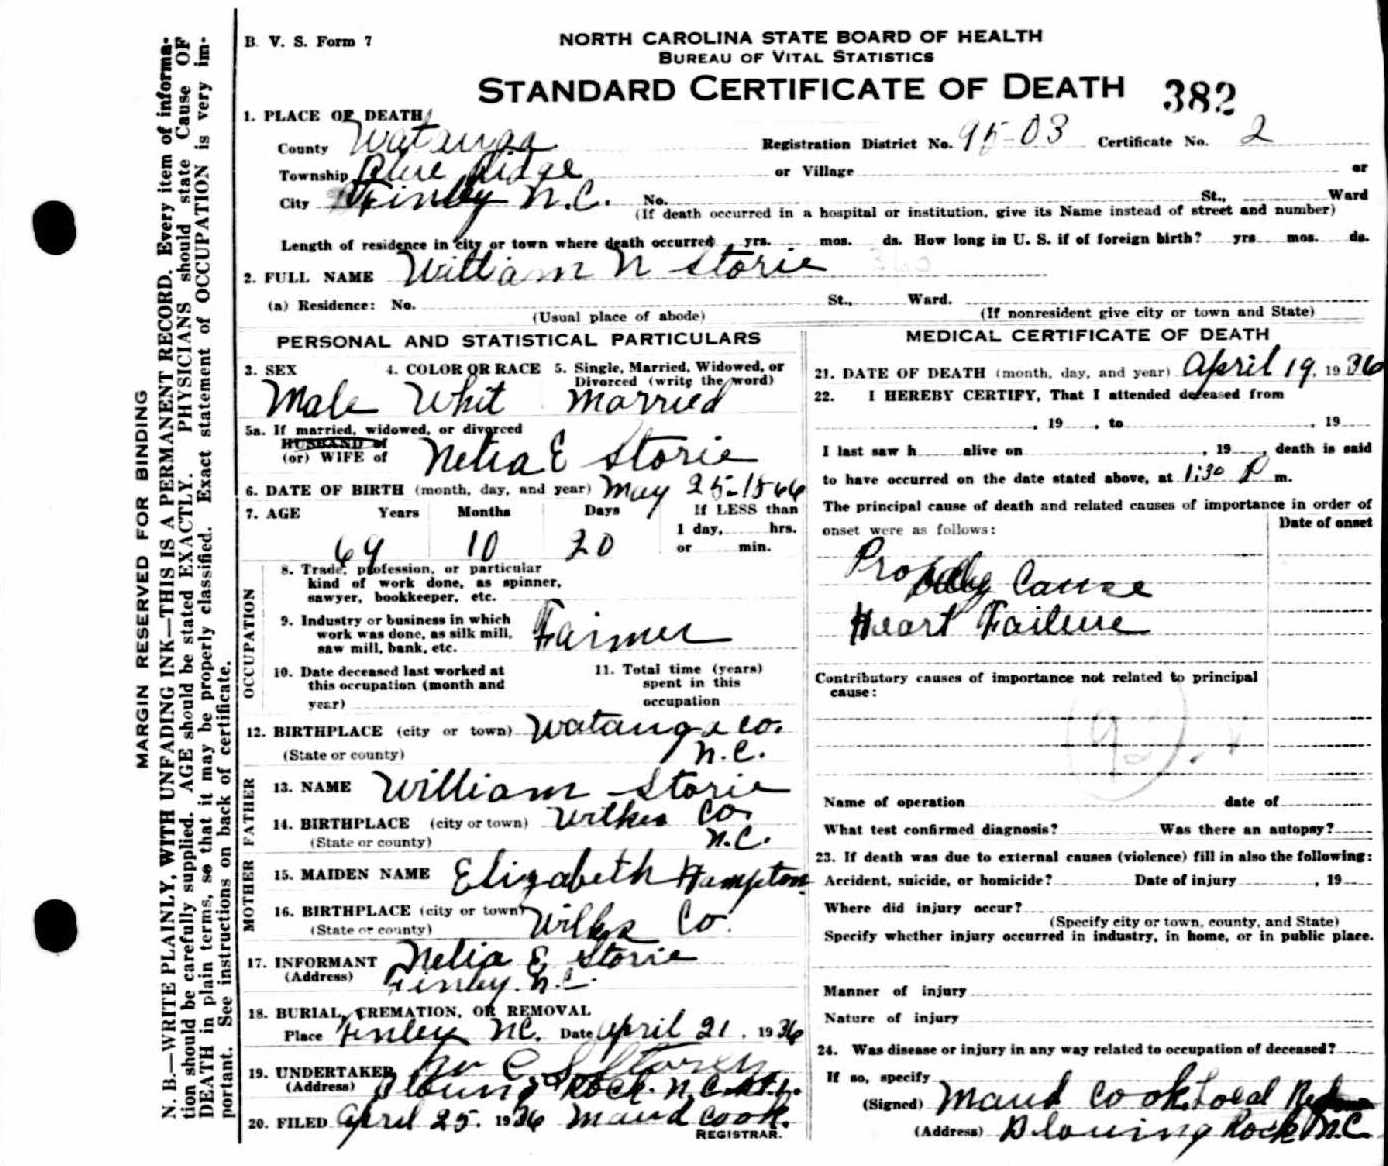 B. V. S. Form 7
NORTH CAROLINA STATE BOARD OF HEALTH
BUREAU OF VITAL STATISTICS
STANDARD CERTIFICATE OF DEATH 382
1. PLACE OF DEATH
County Watauga Registration District No. 95-03 Certificate No. 2
Township Blue Ridge or Village or
City Finley N.C. No. St., Ward
(If death occurred in a hospital or institution, give its Name instead of street and number)
Length of residence in city or town where death occurred yrs. mos. ds. How long in U. S. if of foreign birth? yrs mos. ds.
2. FULL NAME William N Storie
(a) Residence: No. St., Ward.
(Usual place of abode) (If nonresident give city or town and State)
PERSONAL AND STATISTICAL PARTICULARS
3. SEX 4. COLOR OR RACE 5. Single, Married, Widowed, or
Divorced (write the word)
Male Whit Married
5a. If married, widowed, or divorced
HUSBAND of
(or) WIFE of Nelia E Storie
6. DATE OF BIRTH (month, day, and year) May 25-1866
7. AGE Years Months Days If LESS than
1 day, hrs.
69 10 20 or min.
OCCUPATION
8. Trade, profession, or particular
kind of work done, as spinner,
sawyer, bookkeeper, etc.
9. Industry or business in which
work was done, as silk mill,
saw mill, bank, etc. Farmer
10. Date deceased last worked at
this occupation (month and
year)
11. Total time (years)
spent in this
occupation
12. BIRTHPLACE (city or town) Watauga Co.
(State or county) N.C.
FATHER
13. NAME William Storie
14. BIRTHPLACE (city or town) Wilkes Co.
(State or county) N.C.
MOTHER
15. MAIDEN NAME Elizabeth Hampton
16. BIRTHPLACE (city or town) Wilkes Co.
(State or county)
17. INFORMANT Nelia E Storie
(Address) Finley. N.C.
18. BURIAL, CREMATION, OR REMOVAL
Place Finley NC. Date April 21, 1936
19. UNDERTAKER
(Address) Blowing Rock. N.C.
20. FILED April 25. 1936 Maud Cook.
REGISTRAR.
MEDICAL CERTIFICATE OF DEATH
21. DATE OF DEATH (month, day, and year) April 19, 1936
22. I HEREBY CERTIFY, That I attended deceased from
, 19 , to , 19
I last saw h alive on , 19 , death is said
to have occurred on the date stated above, at 1:30 P m.
The principal cause of death and related causes of importance in order of
onset were as follows: Date of onset
Probably Cause
Heart Failure
Contributory causes of importance not related to principal
cause:
Name of operation date of
What test confirmed diagnosis? Was there an autopsy?
23. If death was due to external causes (violence) fill in also the following:
Accident, suicide, or homicide? Date of injury , 19
Where did injury occur?
(Specify city or town, county, and State)
Specify whether injury occurred in industry, in home, or in public place.
Manner of injury
Nature of injury
24. Was disease or injury in any way related to occupation of deceased?
If so, specify
(Signed) Maud Cook, Local
(Address) Blowing Rock N.C.
MARGIN RESERVED FOR BINDING
N. B.—WRITE PLAINLY, WITH UNFADING INK—THIS IS A PERMANENT RECORD. Every item of informa-
tion should be carefully supplied. AGE should be stated EXACTLY. PHYSICIANS should state Cause OF
DEATH in plain terms, so that it may be properly classified. Exact statement of OCCUPATION is very im-
portant. See instructions on back of certificate.